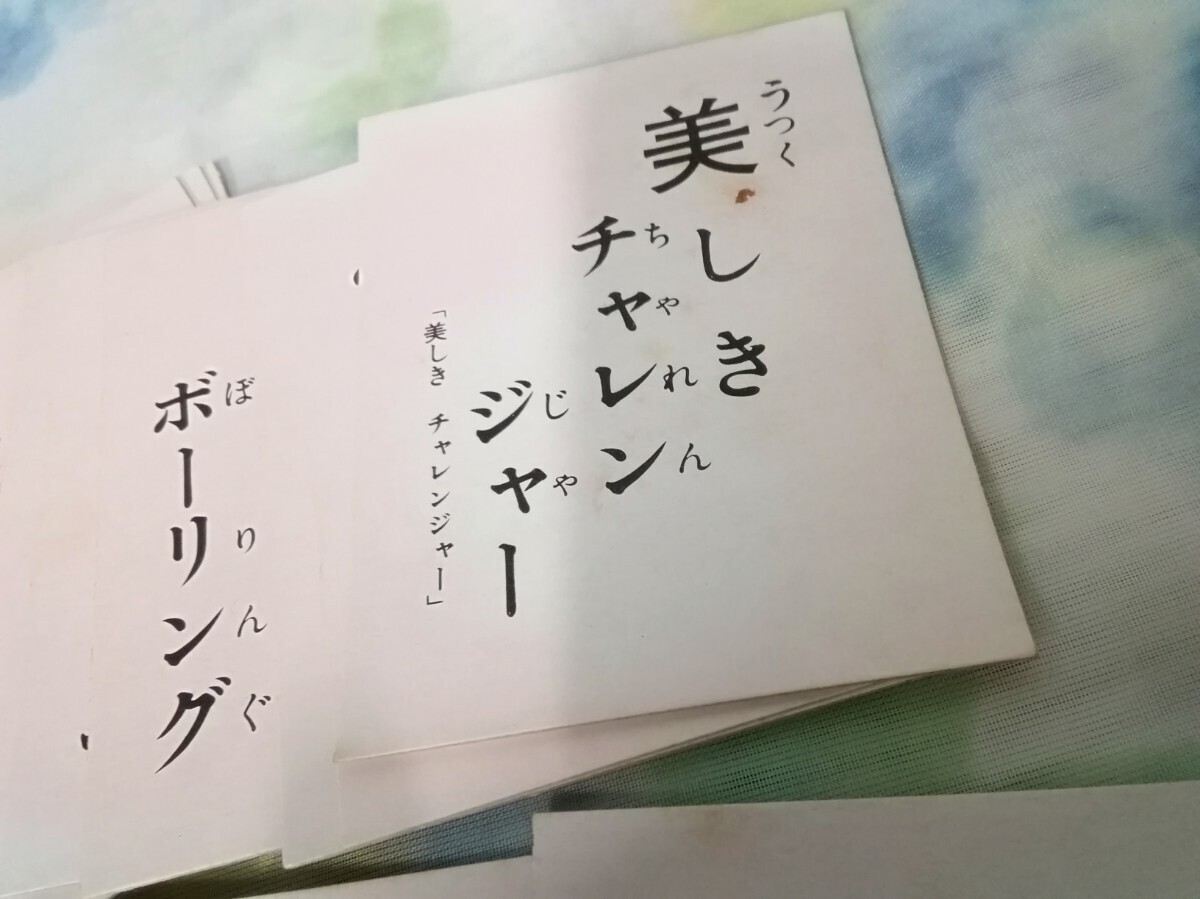 うつく
美しき
ちやれん
チャレン
じや
ジャー
「美しき チャレンジャー」
ぼりんぐ
ボーリング